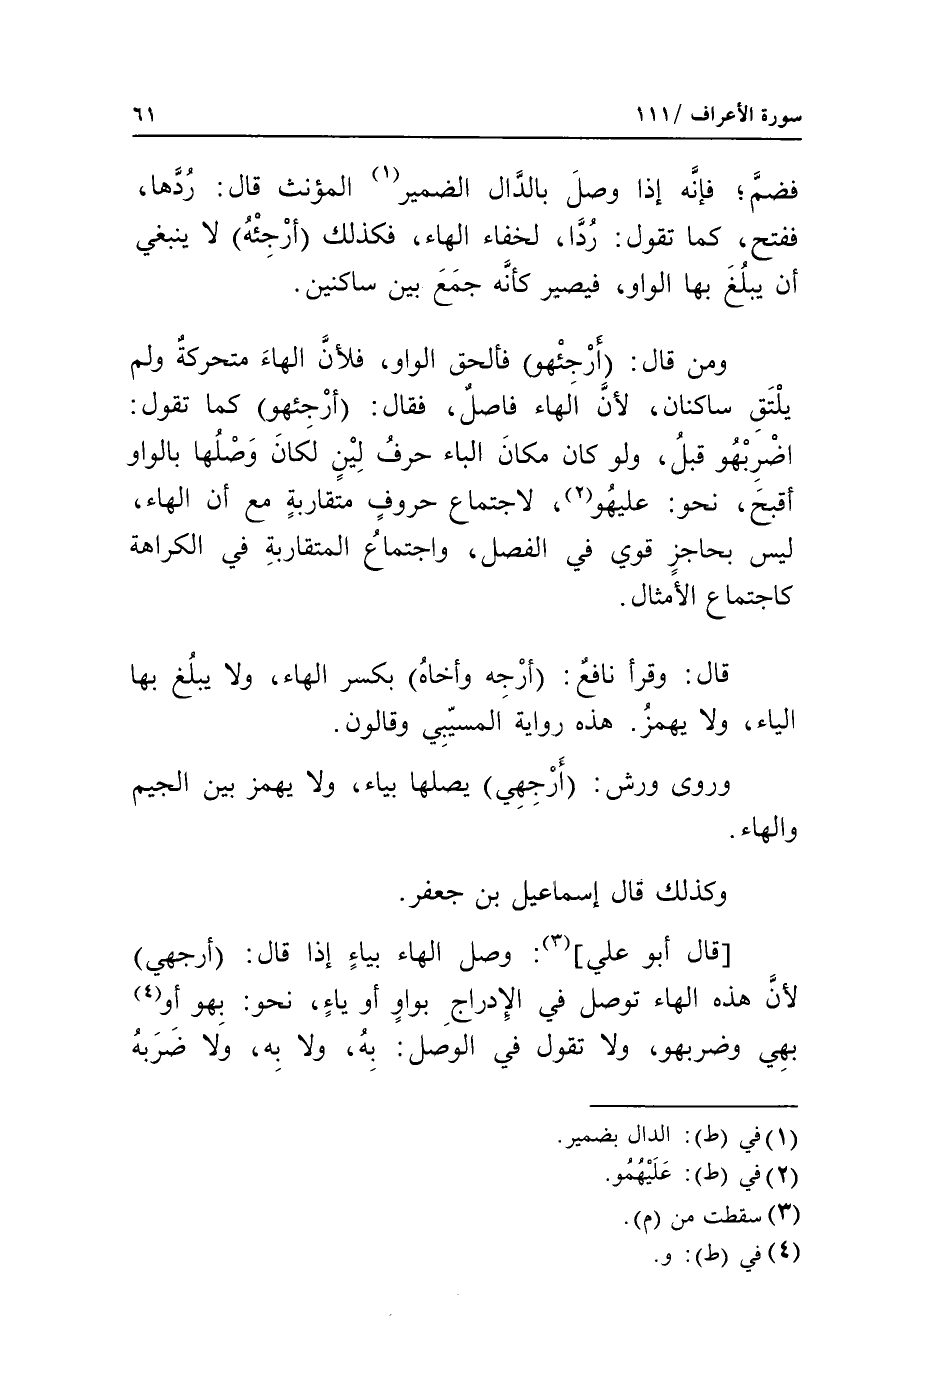 سورة الأعراف /١١١ ٦١
فضمَّ؛ فإنَّه إذا وصلَ بالدَّال الضمير(١) المؤنث قال: رُدَّها،
ففتح، كما تقول: رُدَّا، لخفاء الهاء، فكذلك (أرْجِئْهُ) لا ينبغي
أن يبلُغَ بها الواو، فيصير كأنَّه جمَعَ بين ساكنين.
ومن قال: (أَرْجِئْهو) فألحق الواو، فلأنَّ الهاءَ متحركةٌ ولم
يلْتَقِ ساكنان، لأنَّ الهاء فاصلٌ، فقال: (أرْجِئهو) كما تقول:
اضْرِبْهُو قبلُ، ولو كان مكانَ الباء حرفُ لِيْنٍ لكانَ وَصْلُها بالواو
أقبحَ، نحو: عليهُو(٢)، لاجتماع حروفٍ متقاربةٍ مع أن الهاء،
ليس بحاجزٍ قوي في الفصل، واجتماعُ المتقاربةِ في الكراهة
كاجتماع الأمثال.
قال: وقرأ نافعٌ: (أرْجِه وأخاهُ) بكسر الهاء، ولا يبلُغ بها
الياء، ولا يهمزُ. هذه رواية المسيّبِي وقالون.
وروى ورش: (أَرْجِهِي) يصلها بياء، ولا يهمز بين الجيم
والهاء.
وكذلك قال إسماعيل بن جعفر.
[قال أبو علي](٣): وصل الهاء بياءٍ إذا قال: (أرجهي)
لأنَّ هذه الهاء توصل في الإدراجِ بواوٍ أو ياءٍ، نحو: بِهو أو(٤)
بهِي وضربهو، ولا تقول في الوصل: بِهُ، ولا بِه، ولا ضَرَبهُ
(١) في (ط): الدال بضمير.
(٢) في (ط): عَلَيْهُمُو.
(٣) سقطت من (م).
(٤) في (ط): و.